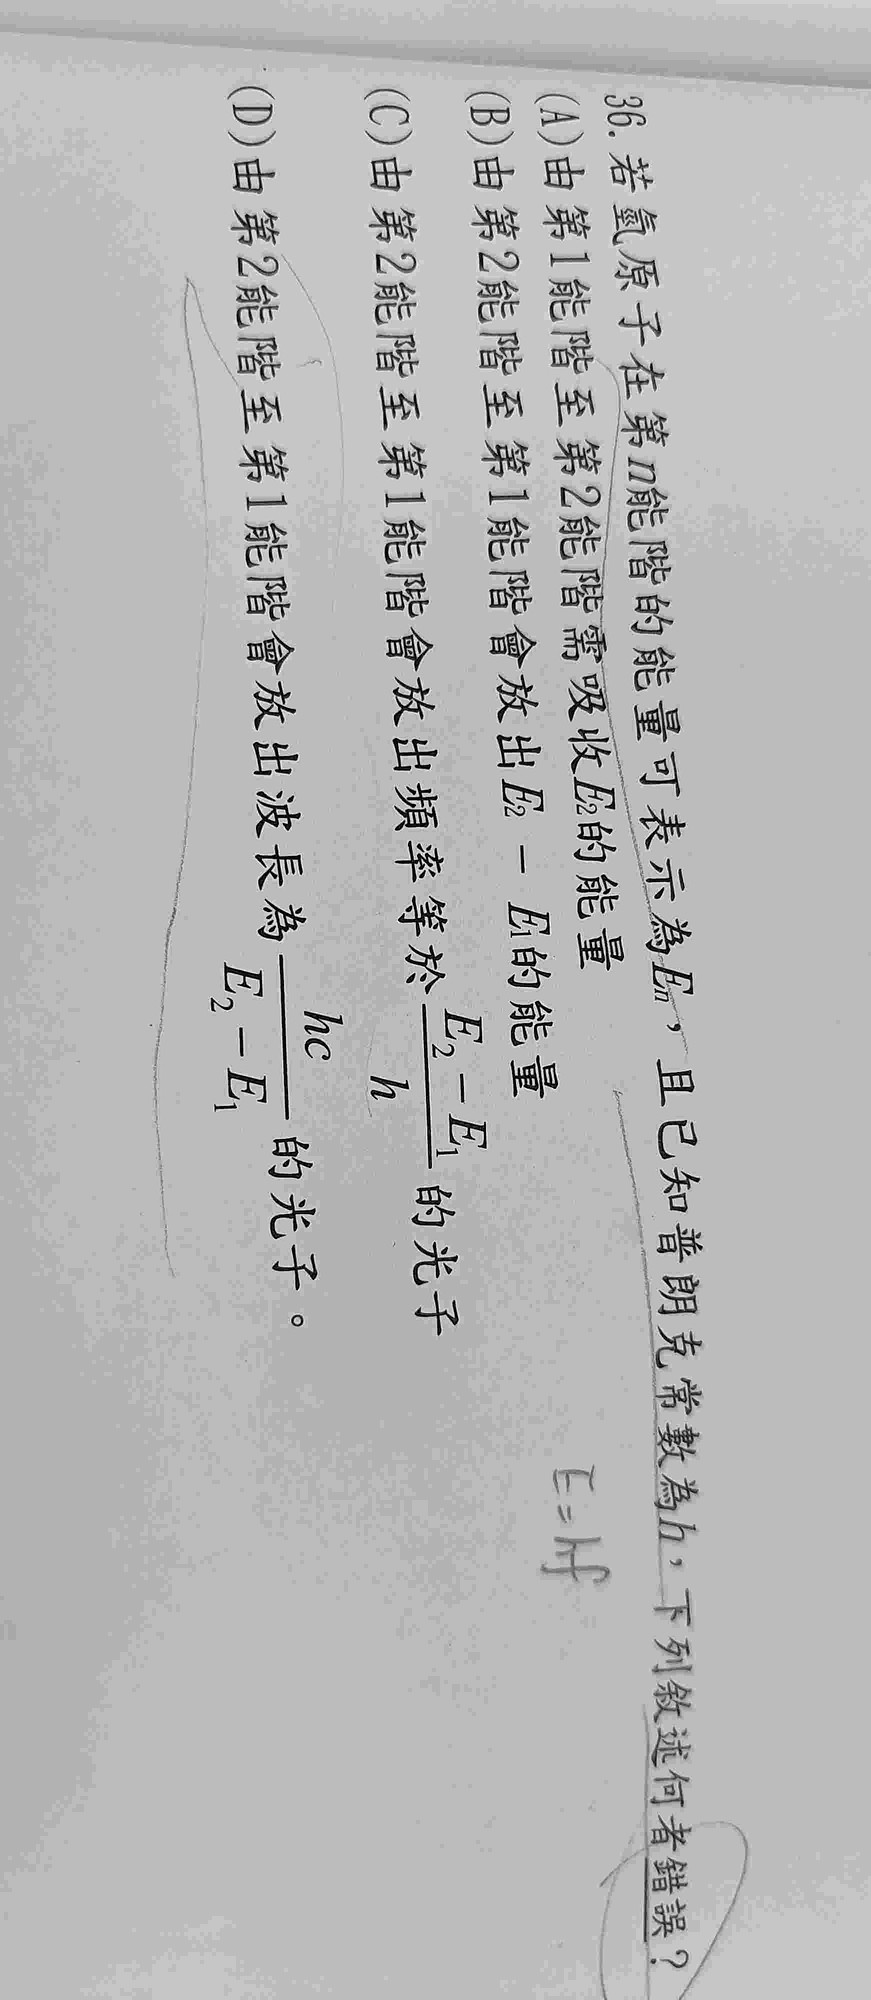 36. 若氫原子在第n能階的能量可表示為Eₙ，且已知普朗克常數為h，下列敘述何者錯誤？
(A)由第1能階至第2能階需吸收E₂的能量
(B)由第2能階至第1能階會放出E₂－E₁的能量
(C)由第2能階至第1能階會放出頻率等於 (E₂－E₁)/h 的光子
(D)由第2能階至第1能階會放出波長為 hc/(E₂－E₁) 的光子。
E=hf